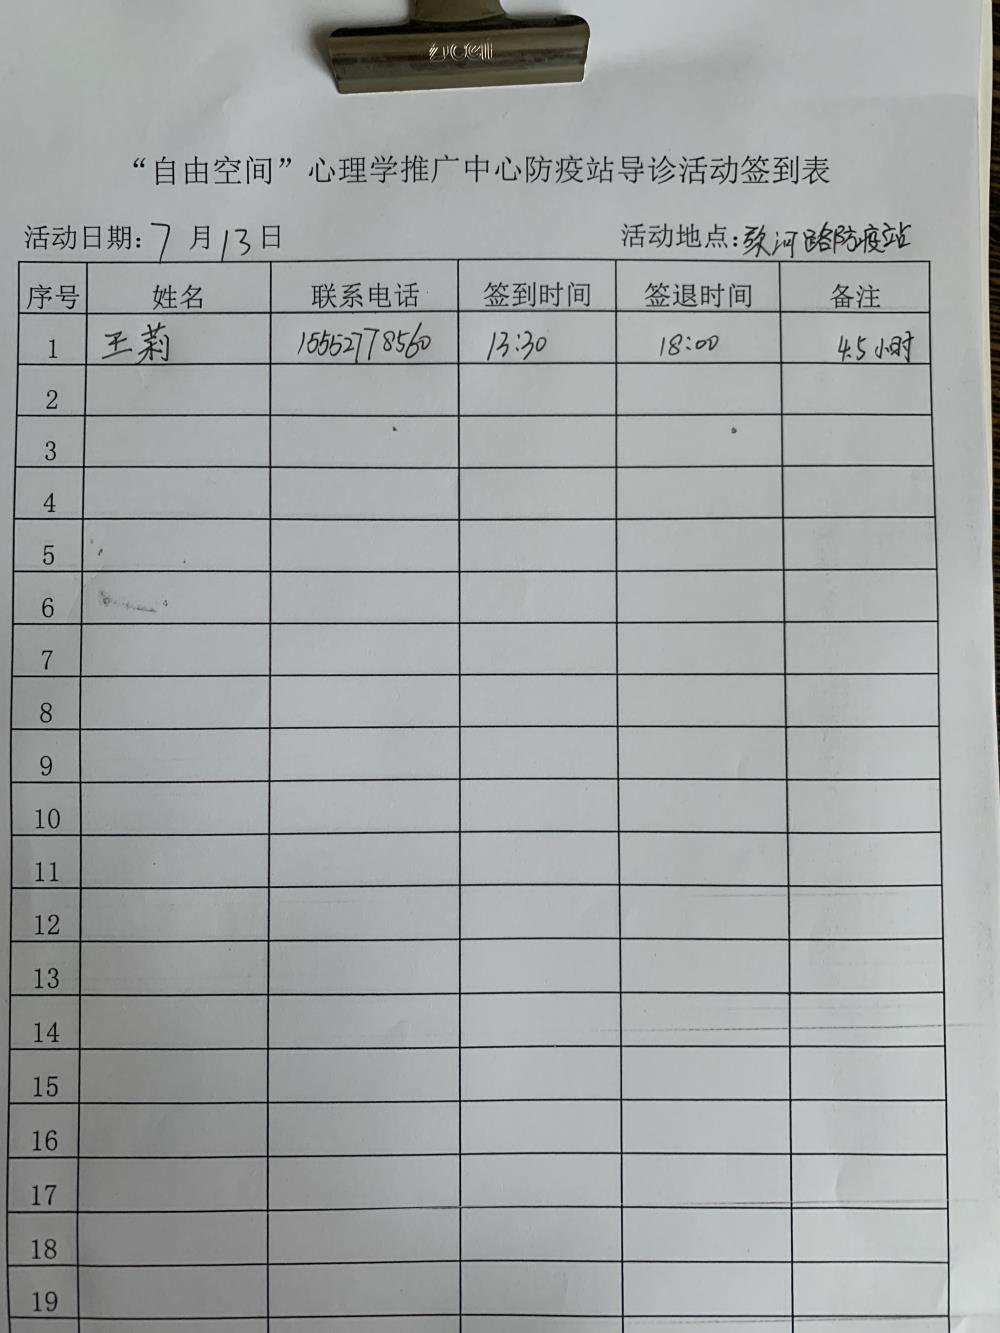 “自由空间”心理学推广中心防疫站导诊活动签到表
活动日期: 7 月 13 日 活动地点: 河路防疫站
序号 姓名 联系电话 签到时间 签退时间 备注
1 王莉 15552778560 13:30 18:00 4.5小时
2
3
4
5
6
7
8
9
10
11
12
13
14
15
16
17
18
19